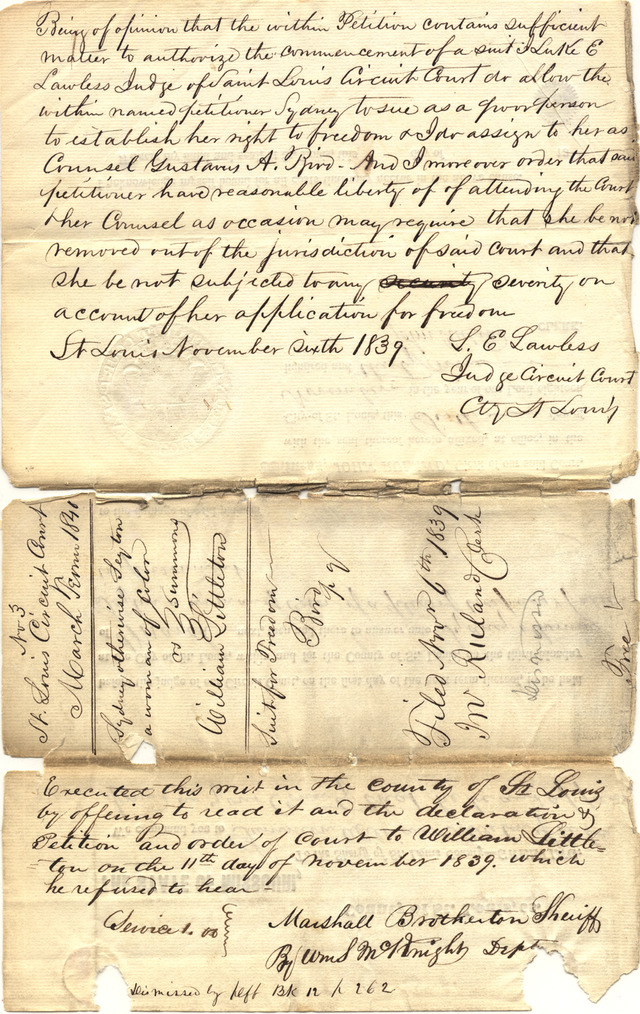 Being of opinion that the within Petition contains sufficient
matter to authorize the commencement of a suit I Luke E
Lawless Judge of Saint Louis Circuit Court do allow the
within named petitioner Sydney to sue as a poor person
to establish her right to freedom & I do assign to her as
Counsel Gustavus A. Bird - And I moreover order that said
petitioner have reasonable liberty of of attending the Court
& her Counsel as occasion may require that she be not
removed out of the jurisdiction of said Court and that
she be not subjected to any security severity on
account of her application for freedom
St Louis November sixth 1839
L. E Lawless
Judge Circuit Court
Cty St Louis
No 3
St. Louis Circuit Court
March Term 1840
Sydney otherwise Seyton
a woman of Color
vs } Summons
William Littleton
Suit for Freedom
Bird p q
Filed Novr 6th 1839
Jno Ruland Clerk
Dismissed
Free
Executed this writ in the county of St Louis
by offering to read it and the declaration &
Petition and order of Court to William Little-
ton on the 11th day of November 1839. which
he refused to hear -
Service 1.00
Marshall Brotherton Sheriff
By Wm S McKnight Dept
Dismissed by Plff Bk 12 p 262